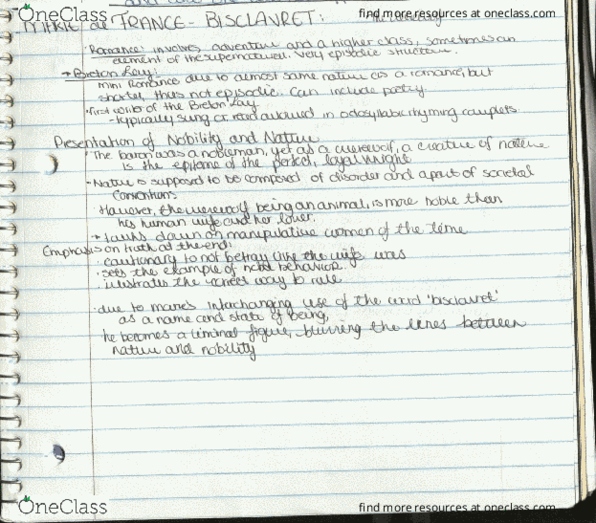 OneClass
find more resources at oneclass.com
MARIE de FRANCE - BISCLAVRET:
Romance: involves adventure and a higher class, sometimes an
element of the supernatural. Very episodic structure.
→ Breton Lay:
mini Romance due to almost same nature as a romance, but
shorter, thus not episodic. Can include poetry.
· first writer of the Breton Lay
- typically sung or read allowed in octosyllabic rhyming couplets
Presentation of Nobility and Nature
· The baron was a nobleman, yet as a werewolf, a creature of nature
is the epitome of the perfect, loyal knight
- Nature is supposed to be composed of disorder and apart of societal
conventions.
· However, the werewolf being an animal, is more noble than
his human wife and her lover.
→ looks down on manipulative women of the time
Emphasis on truth at the end:
· cautionary to not betray like the wife was
· sets the example of noble behavior
· illustrates the correct way to rule
· due to marie's interchanging use of the word 'bisclavret'
as a name and state of being,
· he becomes a liminal figure, blurring the lines between
nature and nobility
OneClass
find more resources at oneclass.com